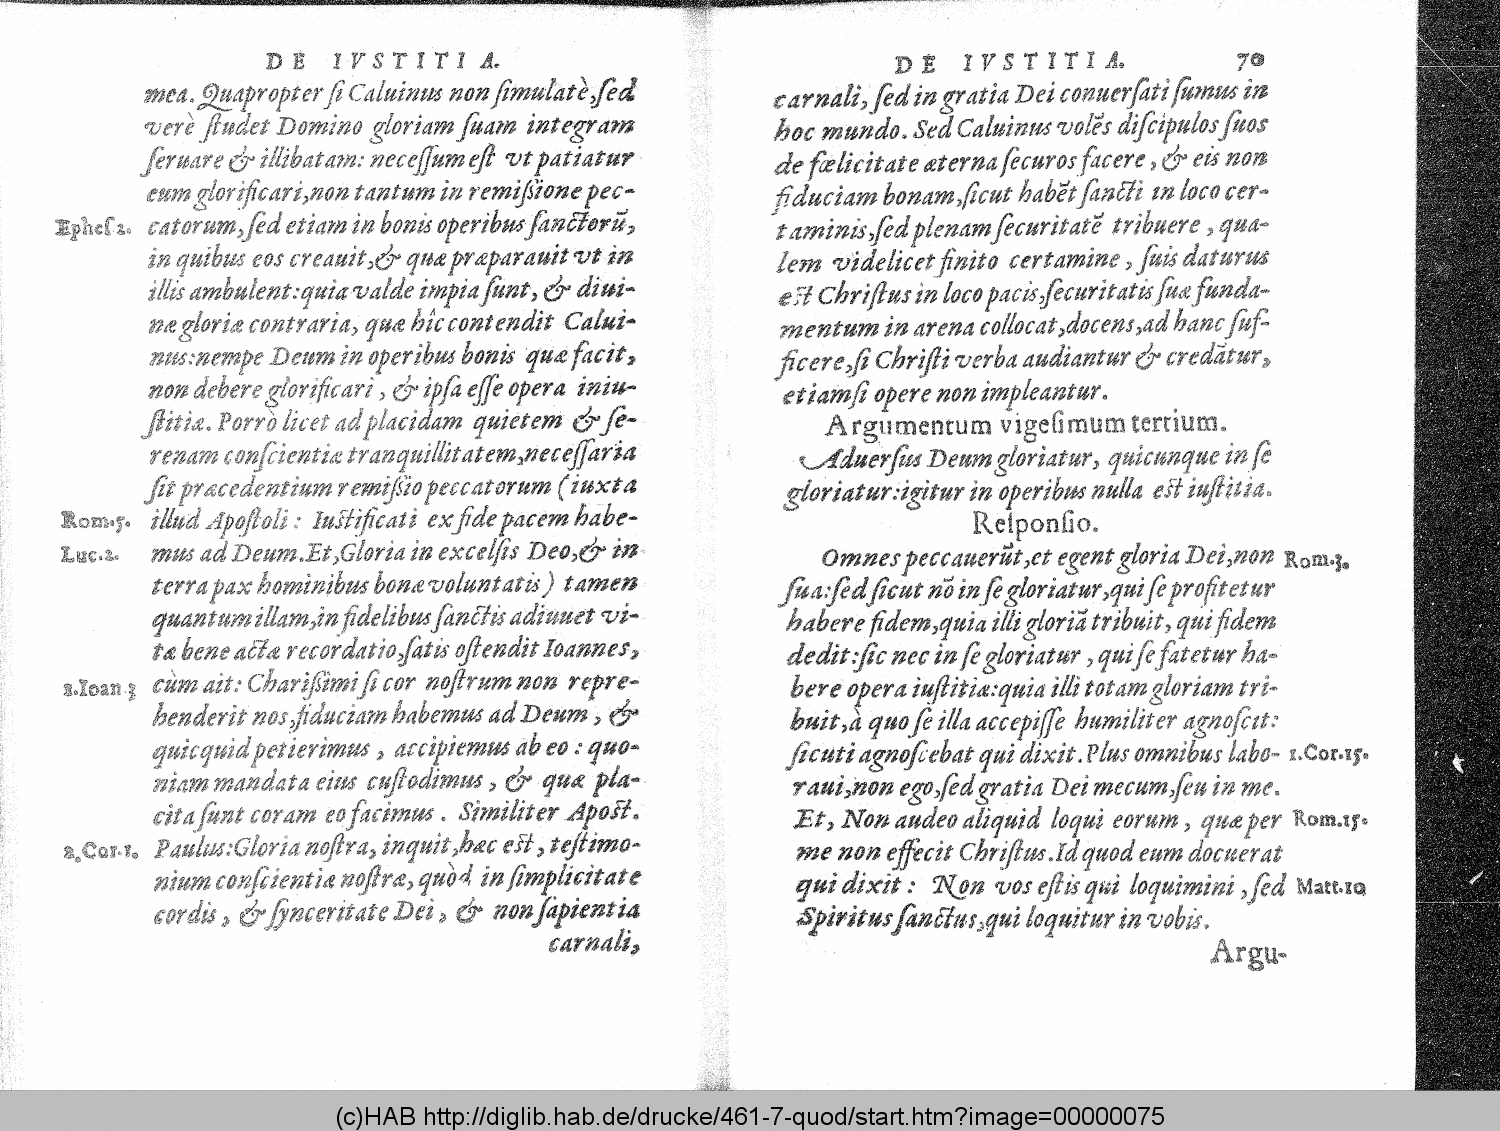 DE IVSTITIA.
mea. Quapropter ſi Caluinus non ſimulatè, ſed
verè ſtudet Domino gloriam ſuam integram
ſeruare & illibatam: neceſſum eſt vt patiatur
eum glorificari, non tantum in remißione pec-
Epheſ 2. catorum, ſed etiam in bonis operibus ſanctorũ,
in quibus eos creauit, & quæ præparauit vt in
illis ambulent: quia valde impia ſunt, & diui-
næ gloriæ contraria, quæ hîc contendit Calui-
nus: nempe Deum in operibus bonis quæ facit,
non debere glorificari, & ipſa eſſe opera iniu-
ſtitiæ. Porrò licet ad placidam quietem & ſe-
renam conſcientiæ tranquillitatem, neceſſaria
ſit præcedentium remißio peccatorum (iuxta
Rom.5. illud Apoſtoli: Iuſtificati ex fide pacem habe-
Luc.2. mus ad Deum. Et, Gloria in excelſis Deo, & in
terra pax hominibus bonæ voluntatis) tamen
quantum illam, in fidelibus ſanctis adiuuet vi-
tæ bene actæ recordatio, ſatis oſtendit Ioannes,
1.Ioan.3 cùm ait: Charißimi ſi cor noſtrum non repre-
henderit nos, fiduciam habemus ad Deum, &
quicquid petierimus, accipiemus ab eo: quo-
niam mandata eius cuſtodimus, & quæ pla-
cita ſunt coram eo facimus. Similiter Apoſt.
2.Cor.1. Paulus: Gloria noſtra, inquit, hæc eſt, teſtimo-
nium conſcientiæ noſtræ, quòd in ſimplicitate
cordis, & ſynceritate Dei, & non ſapientia
carnali,
DE IVSTITIA. 70
carnali, ſed in gratia Dei conuerſati ſumus in
hoc mundo. Sed Caluinus volẽs diſcipulos ſuos
de fœlicitate æterna ſecuros facere, & eis non
fiduciam bonam, ſicut habẽt ſancti in loco cer-
taminis, ſed plenam ſecuritatẽ tribuere, qua-
lem videlicet finito certamine, ſuis daturus
eſt Chriſtus in loco pacis, ſecuritatis ſuæ funda-
mentum in arena collocat, docens, ad hanc ſuf-
ficere, ſi Chriſti verba audiantur & credãtur,
etiamſi opere non impleantur.
Argumentum vigeſimum tertium.
Aduerſus Deum gloriatur, quicunque in ſe
gloriatur: igitur in operibus nulla eſt iuſtitia.
Reſponſio.
Omnes peccauerũt, et egent gloria Dei, non Rom.3.
ſua: ſed ſicut nõ in ſe gloriatur, qui ſe profitetur
habere fidem, quia illi gloriã tribuit, qui fidem
dedit: ſic nec in ſe gloriatur, qui ſe fatetur ha-
bere opera iuſtitiæ: quia illi totam gloriam tri-
buit, à quo ſe illa accepiſſe humiliter agnoſcit:
ſicuti agnoſcebat qui dixit. Plus omnibus labo- 1.Cor.15.
raui, non ego, ſed gratia Dei mecum, ſeu in me.
Et, Non audeo aliquid loqui eorum, quæ per Rom.15.
me non effecit Chriſtus. Id quod eum docuerat
qui dixit: Non vos eſtis qui loquimini, ſed Matt.10
Spiritus ſanctus, qui loquitur in vobis.
Argu-
(c)HAB http://diglib.hab.de/drucke/461-7-quod/start.htm?image=00000075